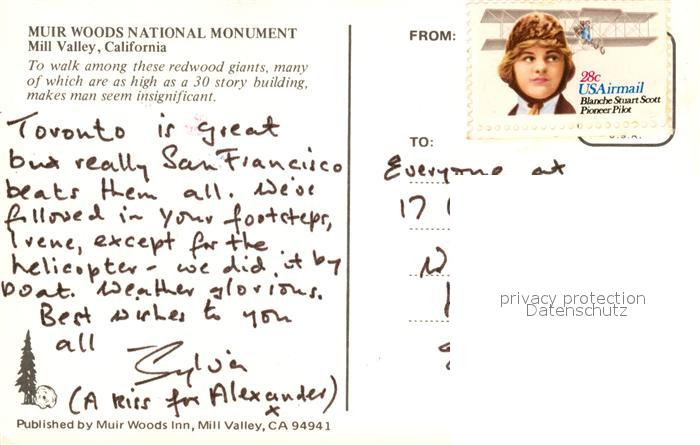 MUIR WOODS NATIONAL MONUMENT
Mill Valley, California
To walk among these redwood giants, many
of which are as high as a 30 story building,
makes man seem insignificant.
Toronto is great
but really San Francisco
beats them all. We've
followed in your footsteps,
Irene, except for the
helicopter - we did it by
boat. Weather glorious.
Best wishes to you
all
Sylvia
(A kiss for Alexander)
x
Published by Muir Woods Inn, Mill Valley, CA 94941
FROM:
28c
USAirmail
Blanche Stuart Scott
Pioneer Pilot
U.S.A.
TO:
Everyone at
17
privacy protection
Datenschutz